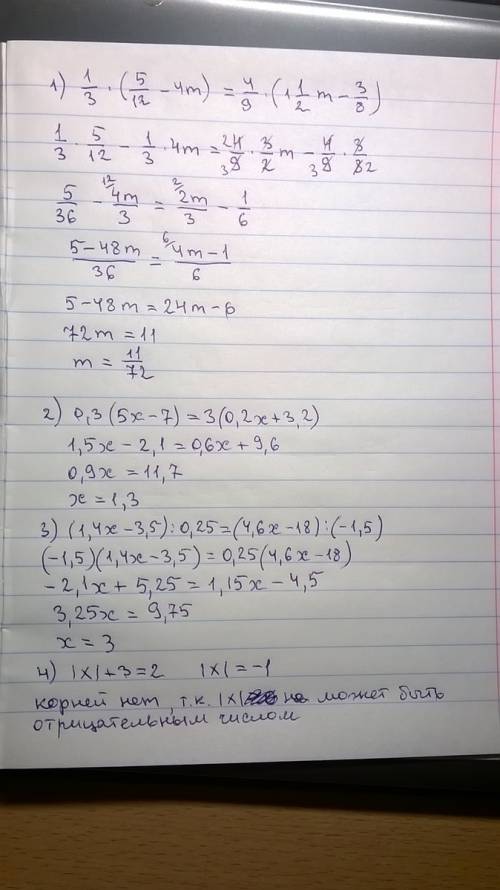 1) 1/3 · (5/12 − 4m) = 4/9 · (1 1/2 m − 3/8)
1/3 · 5/12 − 1/3 · 4m = 4/9 · 3/2 m − 4/9 · 3/8
5/36 − 4m/3 = 2m/3 − 1/6
5−48m/36 = 4m−1/6
5−48m = 24m−6
72m = 11
m = 11/72
2) 0,3(5x−7) = 3(0,2x+3,2)
1,5x − 2,1 = 0,6x + 9,6
0,9x = 11,7
x = 1,3
3) (1,4x−3,5):0,25 = (4,6x−18):(−1,5)
(−1,5)(1,4x−3,5) = 0,25(4,6x−18)
−2,1x + 5,25 = 1,15x − 4,5
3,25x = 9,75
x = 3
4) |x|+3=2 |x|=−1
корней нет, т.к. |x| не может быть
отрицательным числом